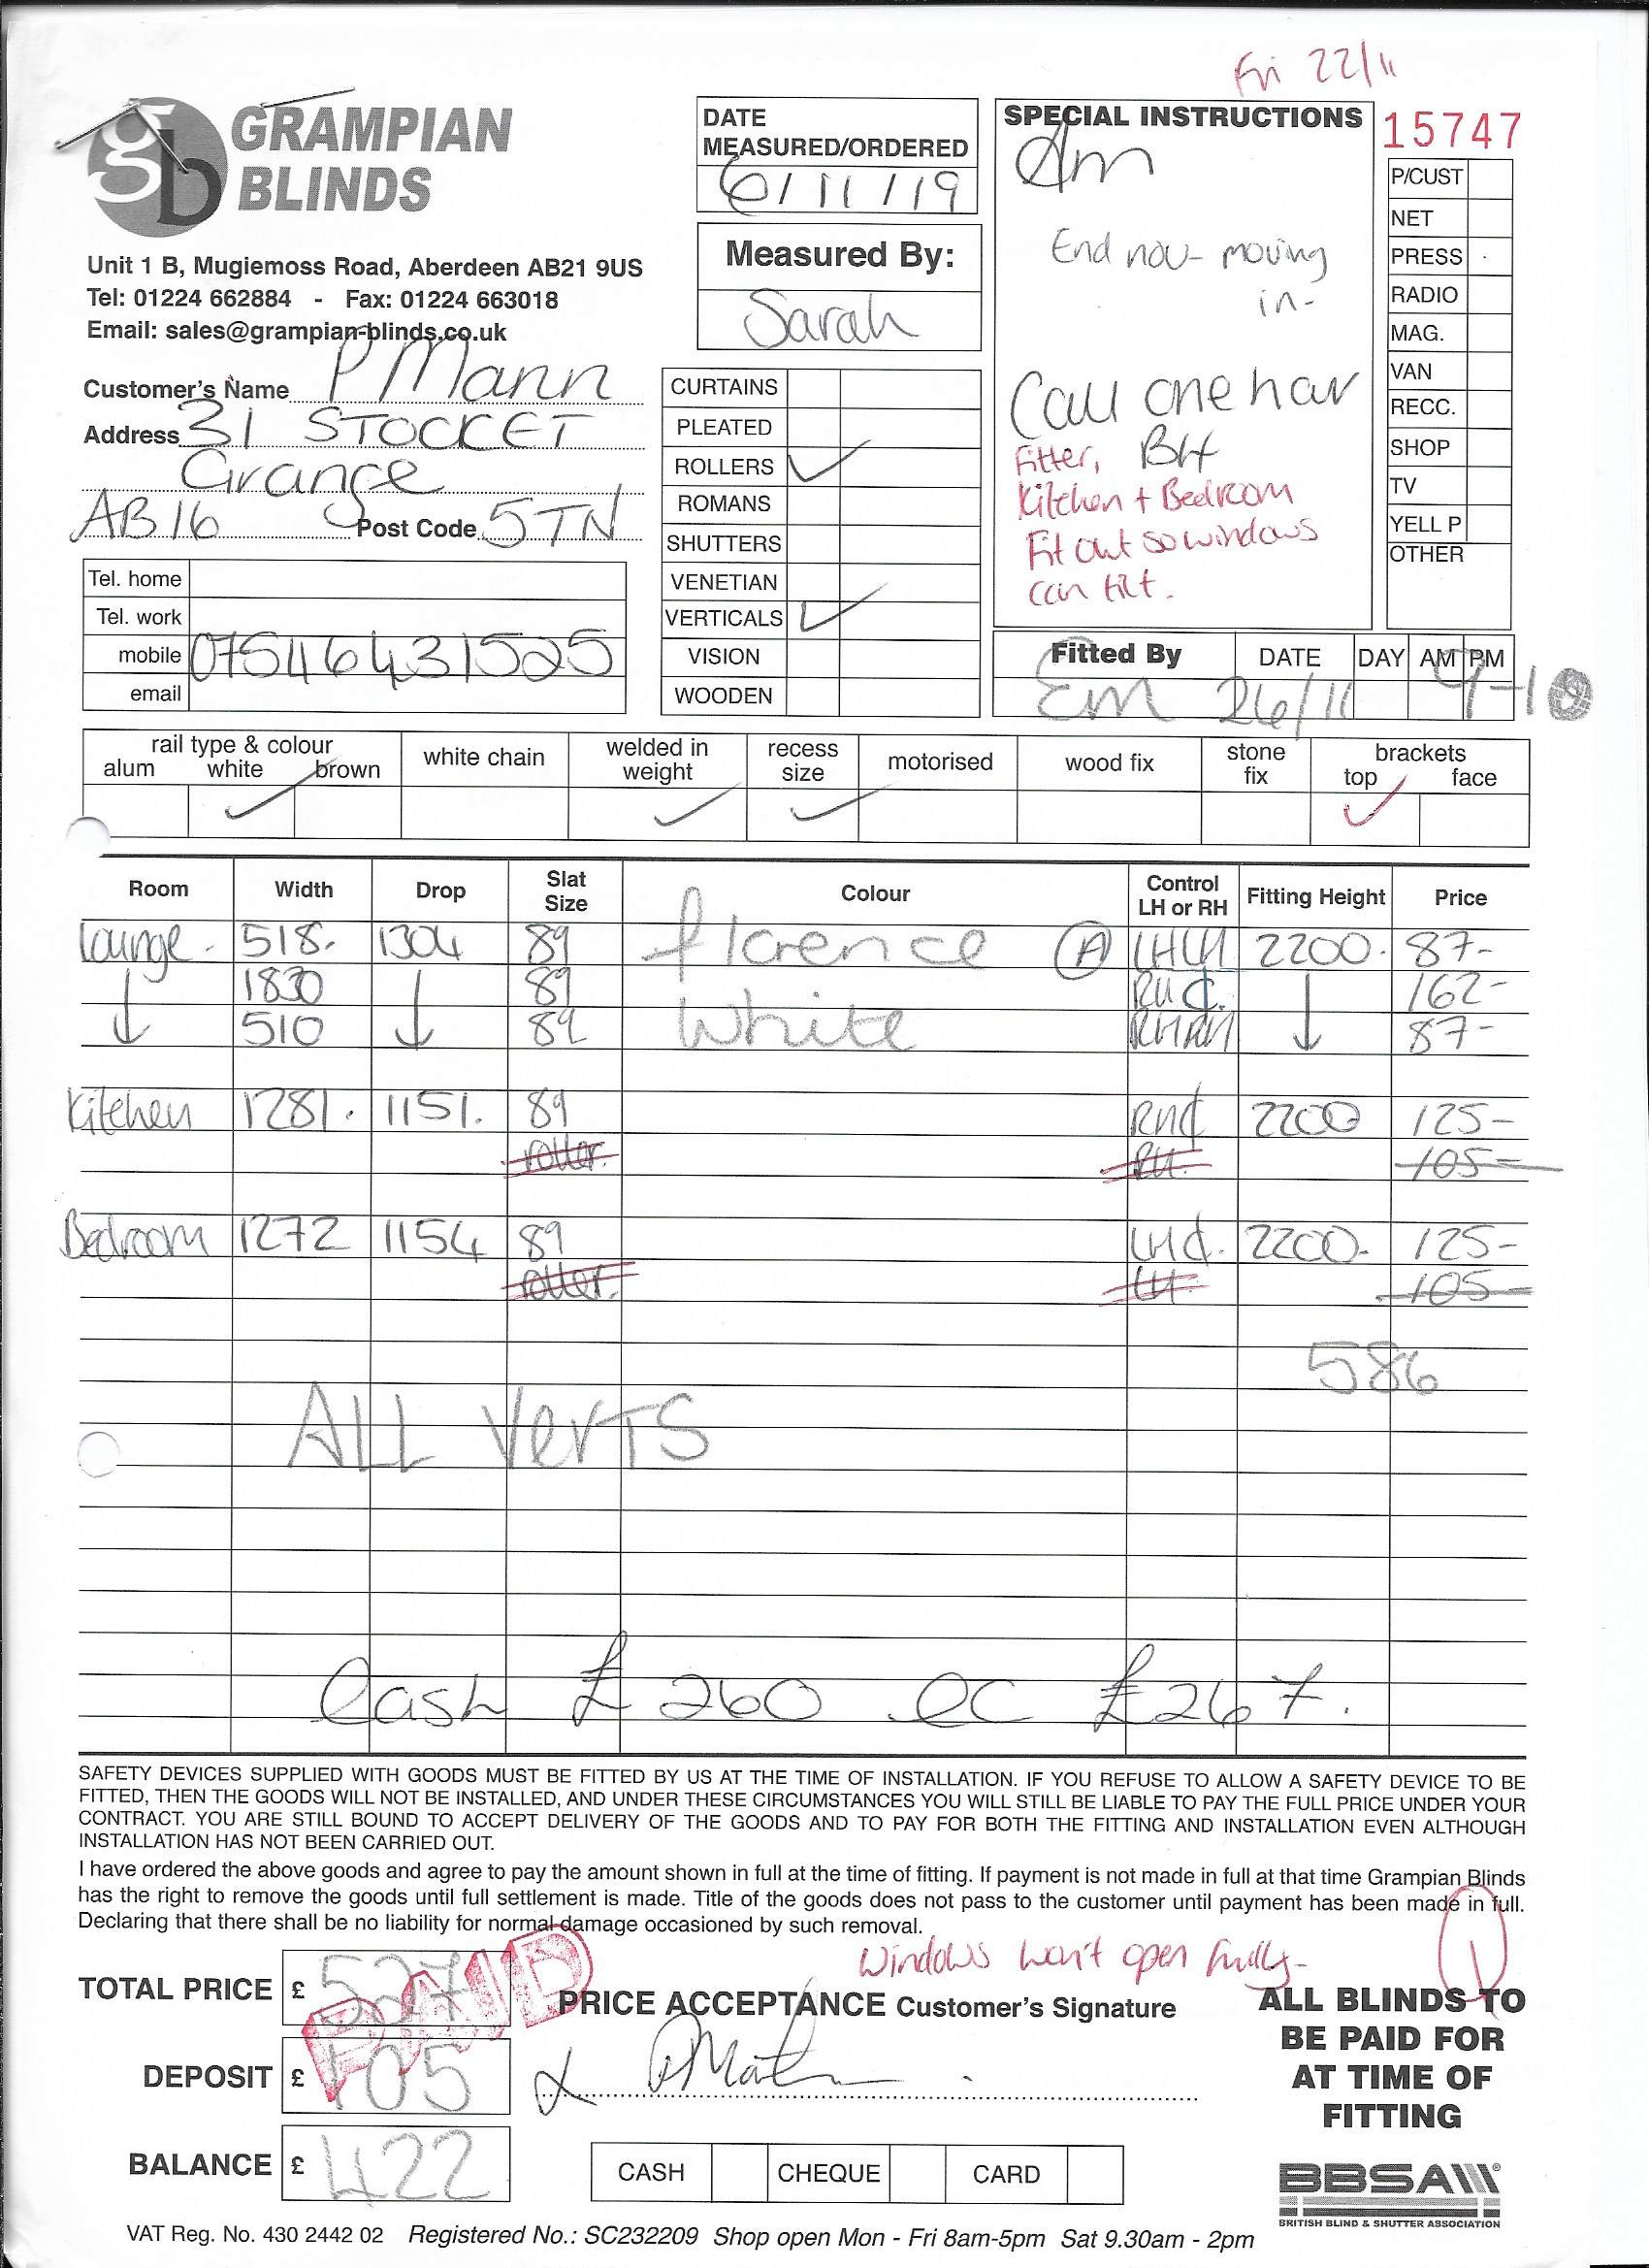 Fri 22/11
GRAMPIAN
BLINDS
Unit 1 B, Mugiemoss Road, Aberdeen AB21 9US
Tel: 01224 662884 - Fax: 01224 663018
Email: sales@grampian-blinds.co.uk
Customer's Name P Mann
Address 31 STOCKET
Grange
AB16 Post Code 5TN
Tel. home
Tel. work
mobile 07546431525
email
DATE
MEASURED/ORDERED
6/11/19
Measured By:
Sarah
CURTAINS
PLEATED
ROLLERS ✓
ROMANS
SHUTTERS
VENETIAN
VERTICALS ✓
VISION
WOODEN
SPECIAL INSTRUCTIONS
Am
End nov- moving
in-
Call one hour
Fitter, B4
Kitchen + Bedroom
Fit out so windows
can tilt.
15747
P/CUST
NET
PRESS
RADIO
MAG.
VAN
RECC.
SHOP
TV
YELL P
OTHER
Fitted By DATE DAY AM PM
Em 26/11 9-10
rail type & colour white chain welded in weight recess size motorised wood fix stone fix brackets
alum white brown top face
✓ ✓ ✓ ✓
Room Width Drop Slat Size Colour Control LH or RH Fitting Height Price
Lounge. 518. 1304 89 florence A LHLH 2200. 87-
↓ 1830 ↓ 89 RHC. ↓ 162-
↓ 510 89 White RHRH 87-
Kitchen 1281. 1151. 89 RHC 2200 125-
roller. RH. 105-
Bedroom 1272 1154 89 LHC. 2200. 125-
roller. LH. 105-
586
ALL VerTS
Cash £260 CC £267.
SAFETY DEVICES SUPPLIED WITH GOODS MUST BE FITTED BY US AT THE TIME OF INSTALLATION. IF YOU REFUSE TO ALLOW A SAFETY DEVICE TO BE
FITTED, THEN THE GOODS WILL NOT BE INSTALLED, AND UNDER THESE CIRCUMSTANCES YOU WILL STILL BE LIABLE TO PAY THE FULL PRICE UNDER YOUR
CONTRACT. YOU ARE STILL BOUND TO ACCEPT DELIVERY OF THE GOODS AND TO PAY FOR BOTH THE FITTING AND INSTALLATION EVEN ALTHOUGH
INSTALLATION HAS NOT BEEN CARRIED OUT.
I have ordered the above goods and agree to pay the amount shown in full at the time of fitting. If payment is not made in full at that time Grampian Blinds
has the right to remove the goods until full settlement is made. Title of the goods does not pass to the customer until payment has been made in full.
Declaring that there shall be no liability for normal damage occasioned by such removal.
Windows won't open fully-
TOTAL PRICE £ 527
PAID
PRICE ACCEPTANCE Customer's Signature
DEPOSIT £ 105
BALANCE £ 422
CASH CHEQUE CARD
ALL BLINDS TO
BE PAID FOR
AT TIME OF
FITTING
BBSA
BRITISH BLIND & SHUTTER ASSOCIATION
VAT Reg. No. 430 2442 02 Registered No.: SC232209 Shop open Mon - Fri 8am-5pm Sat 9.30am - 2pm